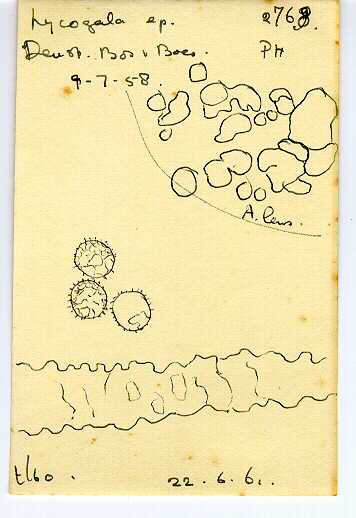 Lycogala ep. 2763.
Deust. Bos v Boes. PH
9-7-58.
A. lens.
t/60.
22.6.61.